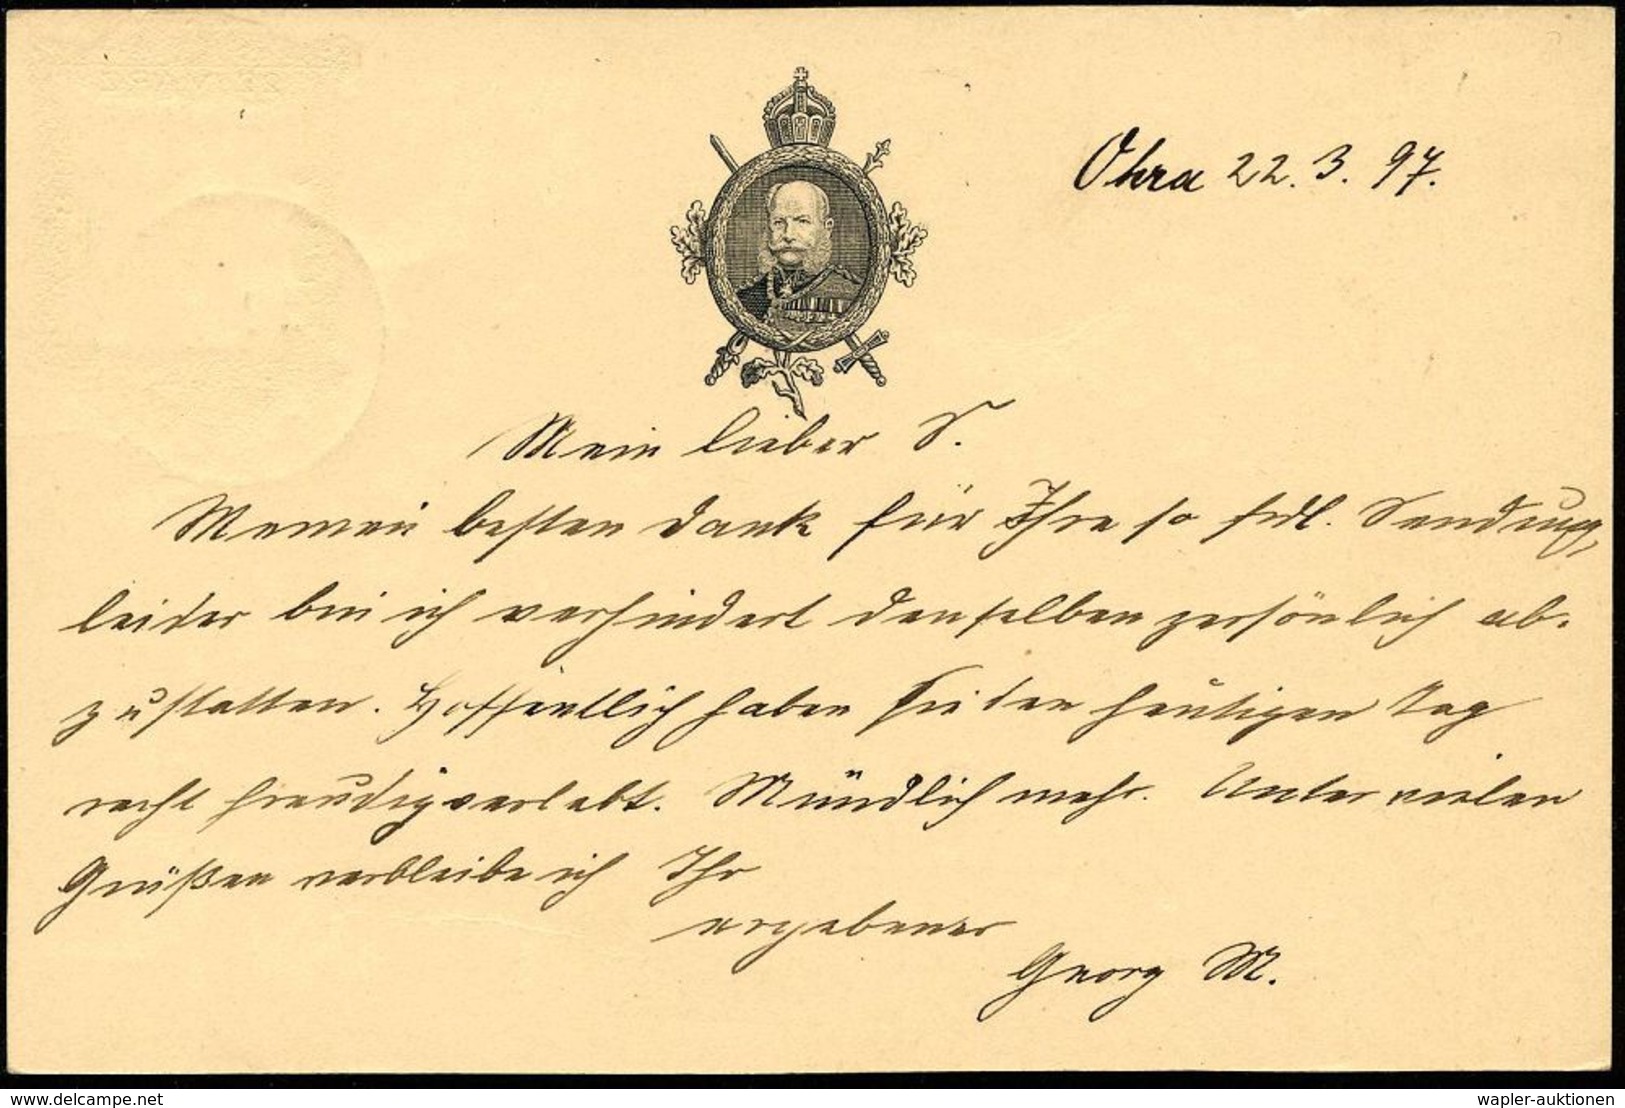 Ohra 22. 3. 97.
Mein lieber S.
Meinen besten Dank für Ihre so frdl. Sendung,
leider bin ich verhindert denselben persönlich ab-
zustatten. Hoffentlich haben Sie den heutigen Tag
recht freudig verlebt. Mündlich mehr. Unter vielen
Grüßen verbleibe ich Ihr
ergebener
Georg M.
www.delcampe.net
wapler-auktionen